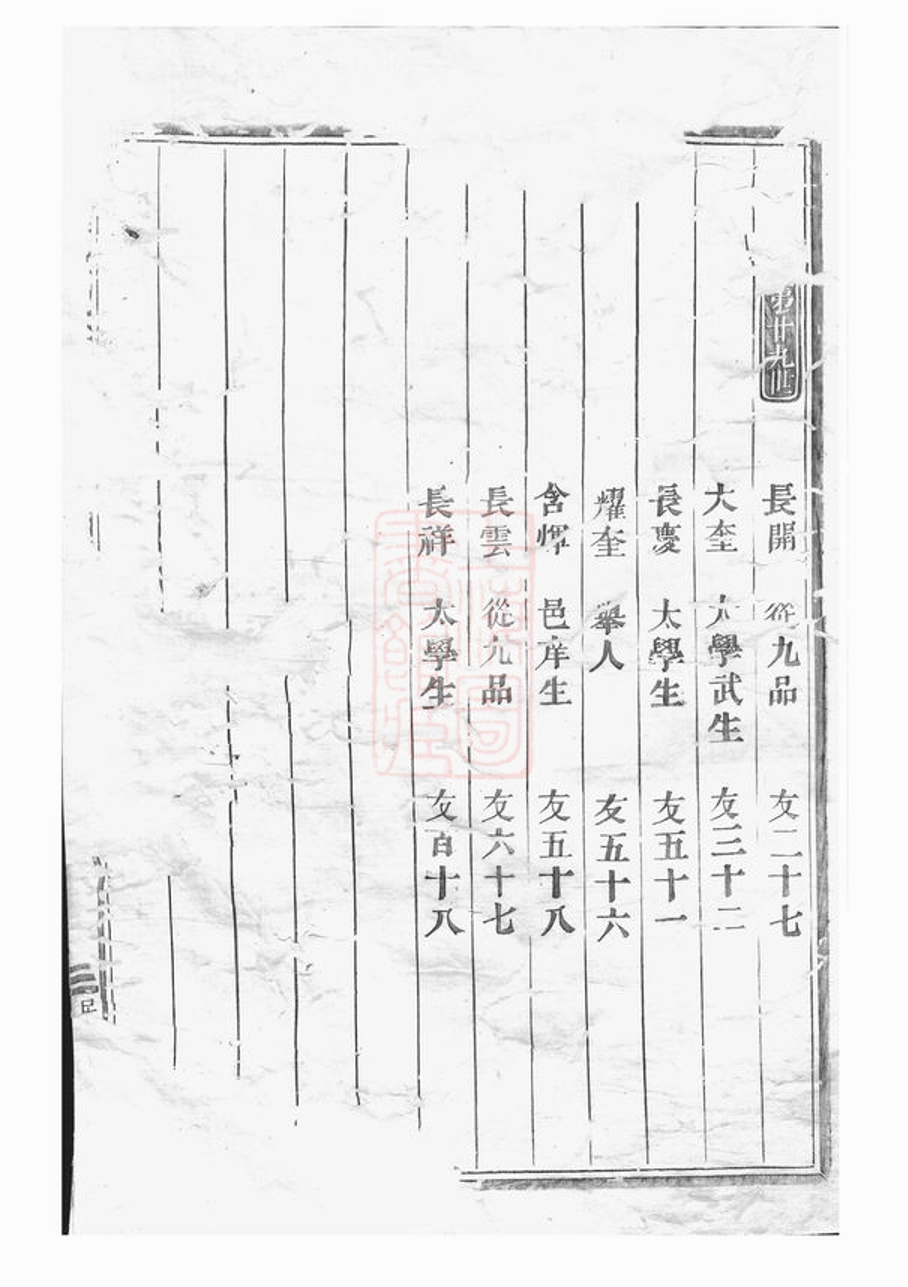 第廿九世
長開 從九品 友二十七
大奎 太學武生 友三十二
長慶 太學生 友五十一
耀奎 舉人 友五十六
含惲 邑庠生 友五十八
長雲 從九品 友六十七
長祥 太學生 友百十八